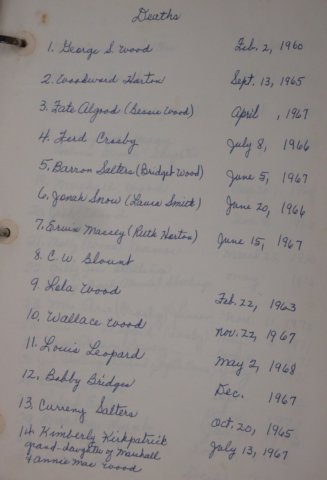 Deaths
1. George S Wood Feb. 2, 1960
2. Woodward Horton Sept. 13, 1965
3. Fate Algood (Bessie Wood) April , 1967
4. Ferd Crosby July 8, 1966
5. Barron Salters (Bridget Wood) June 5, 1967
6. Jonah Snow (Laura Smith) June 20, 1966
7. Ervin Massey (Ruth Horton) June 15, 1967
8. C. W. Blount
9. Lela Wood Feb. 22, 1963
10. Wallace Wood Nov. 22, 1967
11. Louis Leopard May 2, 1968
12. Bobby Bridges Dec. 1967
13. Curreny Salters Oct. 20, 1965
14. Kimberly Kirkpatrick July 13, 1967
grand-daughter of Marshall
& Annie Mae Wood